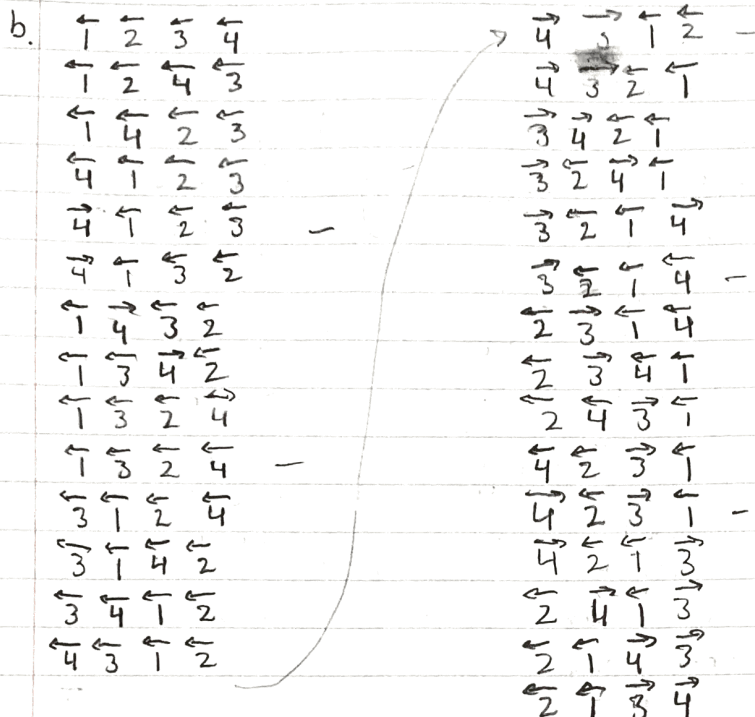 b. 1⃖ 2⃖ 3⃖ 4⃖
1⃖ 2⃖ 4⃖ 3⃖
1⃖ 4⃖ 2⃖ 3⃖
4⃖ 1⃖ 2⃖ 3⃖
4⃗ 1⃖ 2⃖ 3⃖ –
4⃗ 1⃖ 3⃖ 2⃖
1⃖ 4⃗ 3⃖ 2⃖
1⃖ 3⃖ 4⃗ 2⃖
1⃖ 3⃖ 2⃖ 4⃗
1⃖ 3⃖ 2⃖ 4⃖ –
3⃖ 1⃖ 2⃖ 4⃖
3⃖ 1⃖ 4⃖ 2⃖
3⃖ 4⃖ 1⃖ 2⃖
4⃖ 3⃖ 1⃖ 2⃖
4⃗ 1⃖ 2⃖ –
4⃗ 3⃗ 2⃖ 1⃖
3⃗ 4⃗ 2⃖ 1⃖
3⃗ 2⃖ 4⃗ 1⃖
3⃗ 2⃖ 1⃖ 4⃗
3⃗ 2⃖ 1⃖ 4⃖ –
2⃖ 3⃗ 1⃖ 4⃖
2⃖ 3⃗ 4⃖ 1⃖
2⃖ 4⃖ 3⃗ 1⃖
4⃖ 2⃖ 3⃗ 1⃖
4⃗ 2⃖ 3⃗ 1⃖ –
4⃗ 2⃖ 1⃖ 3⃗
2⃖ 4⃗ 1⃖ 3⃗
2⃖ 1⃖ 4⃗ 3⃗
2⃖ 1⃖ 3⃗ 4⃗